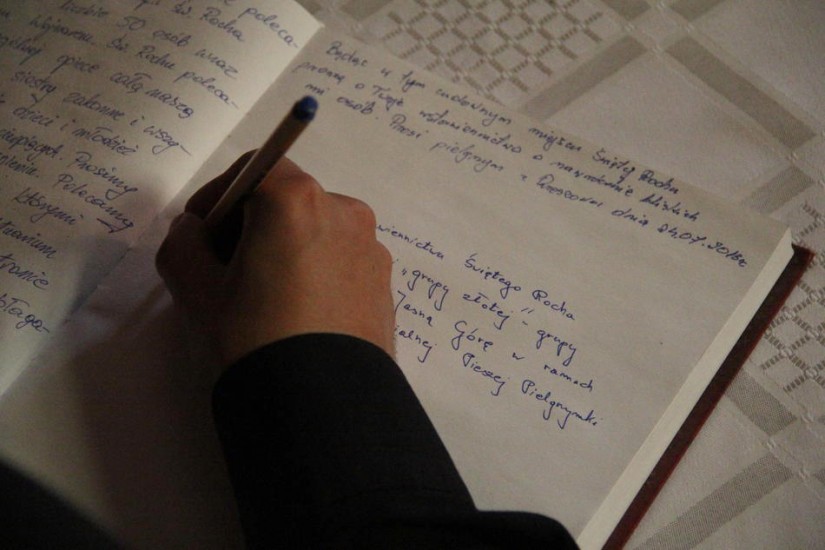 poleca-
Św. Rocha
50 osób wraz
Św. Rochu poleca-
opiece całą naszą
siostry zakonne i wszy-
dzieci i młodzież
Prosimy
Polecamy
którymi
błaga-
Będąc w tym cudownym miejscu Święty Rochu
proszę o Twoje wstawiennictwo o nawrócenie bliskich
mi osób. Piesi pielgrzymi z Rzeszowa dnia 24.07.2018r
wiennictwa Świętego Rocha
i „grupy złotej" - grupy
Jasną Górę w ramach
alnej Pieszej Pielgrzymki